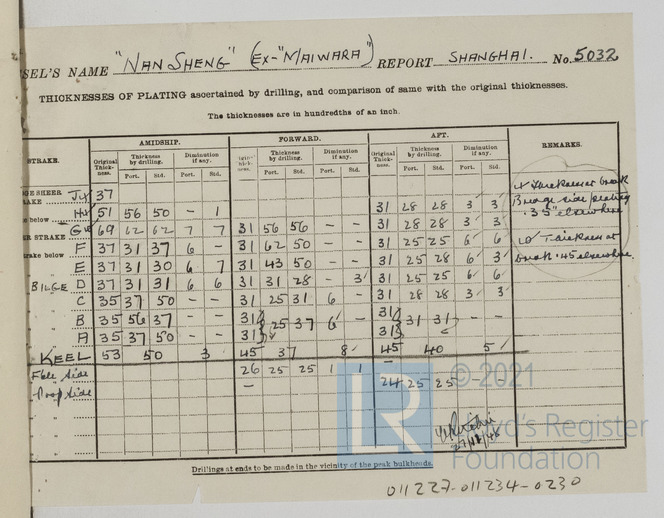 SEL'S NAME "NAN SHENG" (EX-"MAIWARA") REPORT SHANGHAI. No. 5032
THICKNESSES OF PLATING ascertained by drilling, and comparison of same with the original thicknesses.
The thicknesses are in hundredths of an inch.
STRAKE. AMIDSHIP. FORWARD. AFT. REMARKS.
Original Thickness. Thickness by drilling. Diminution if any. Thickness by drilling. Diminution if any. Original Thickness. Thickness by drilling. Diminution if any.
Port. Std. Port. Std. Port. Std. Port. Std. Port. Std. Port. Std.
GE SHEER
RAKE J 37
below H 51 56 50 - 1 31 28 28 3 3
R STRAKE G 69 62 62 7 7 31 56 56 - - 31 28 28 3 3
rake below F 37 31 37 6 - 31 62 50 - - 31 25 25 6 6
E 37 31 30 6 7 31 43 50 - - 31 25 28 6 3
BILGE D 37 31 31 6 6 31 31 28 - 3 31 25 25 6 6
C 35 37 50 - - 31 25 31 6 - 31 28 28 3 3
B 35 56 37 - - 31 25 37 6 - 31 31 31 - -
A 35 37 50 - - 31 31
KEEL 53 50 3 45 37 8 45 40 5
Side 26 25 25 1 1 -
Poop Side - 24 25 25 - -
Bridge side plating
.35" elsewhere
.45 elsewhere.
© 2021
LR
Lloyd's Register
Foundation
Drillings at ends to be made in the vicinity of the peak bulkheads.
011227-011234-0230